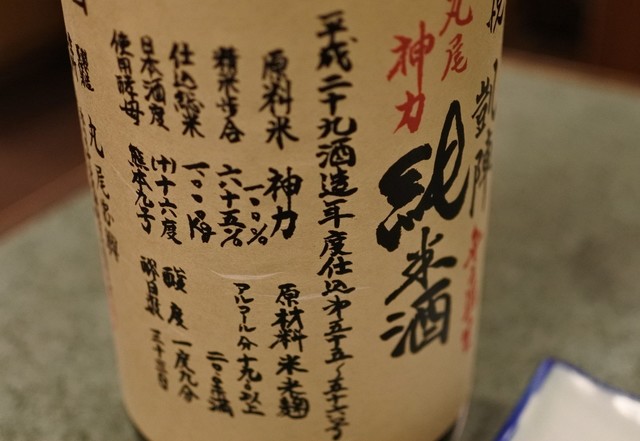 悦凱陣
丸尾
神力
純米酒
平成二十九酒造年度仕込第五十五〜五十六号
原料米 神力
一〇〇%
原材料 米 米麹
精米歩合 六十五%
アルコール分 十九゜以上
二〇゜未満
仕込総米 一〇〇〇kg
日本酒度 (+)十六度
酸度 一度九分
使用酵母 熊本九号
醪日数 三十三日